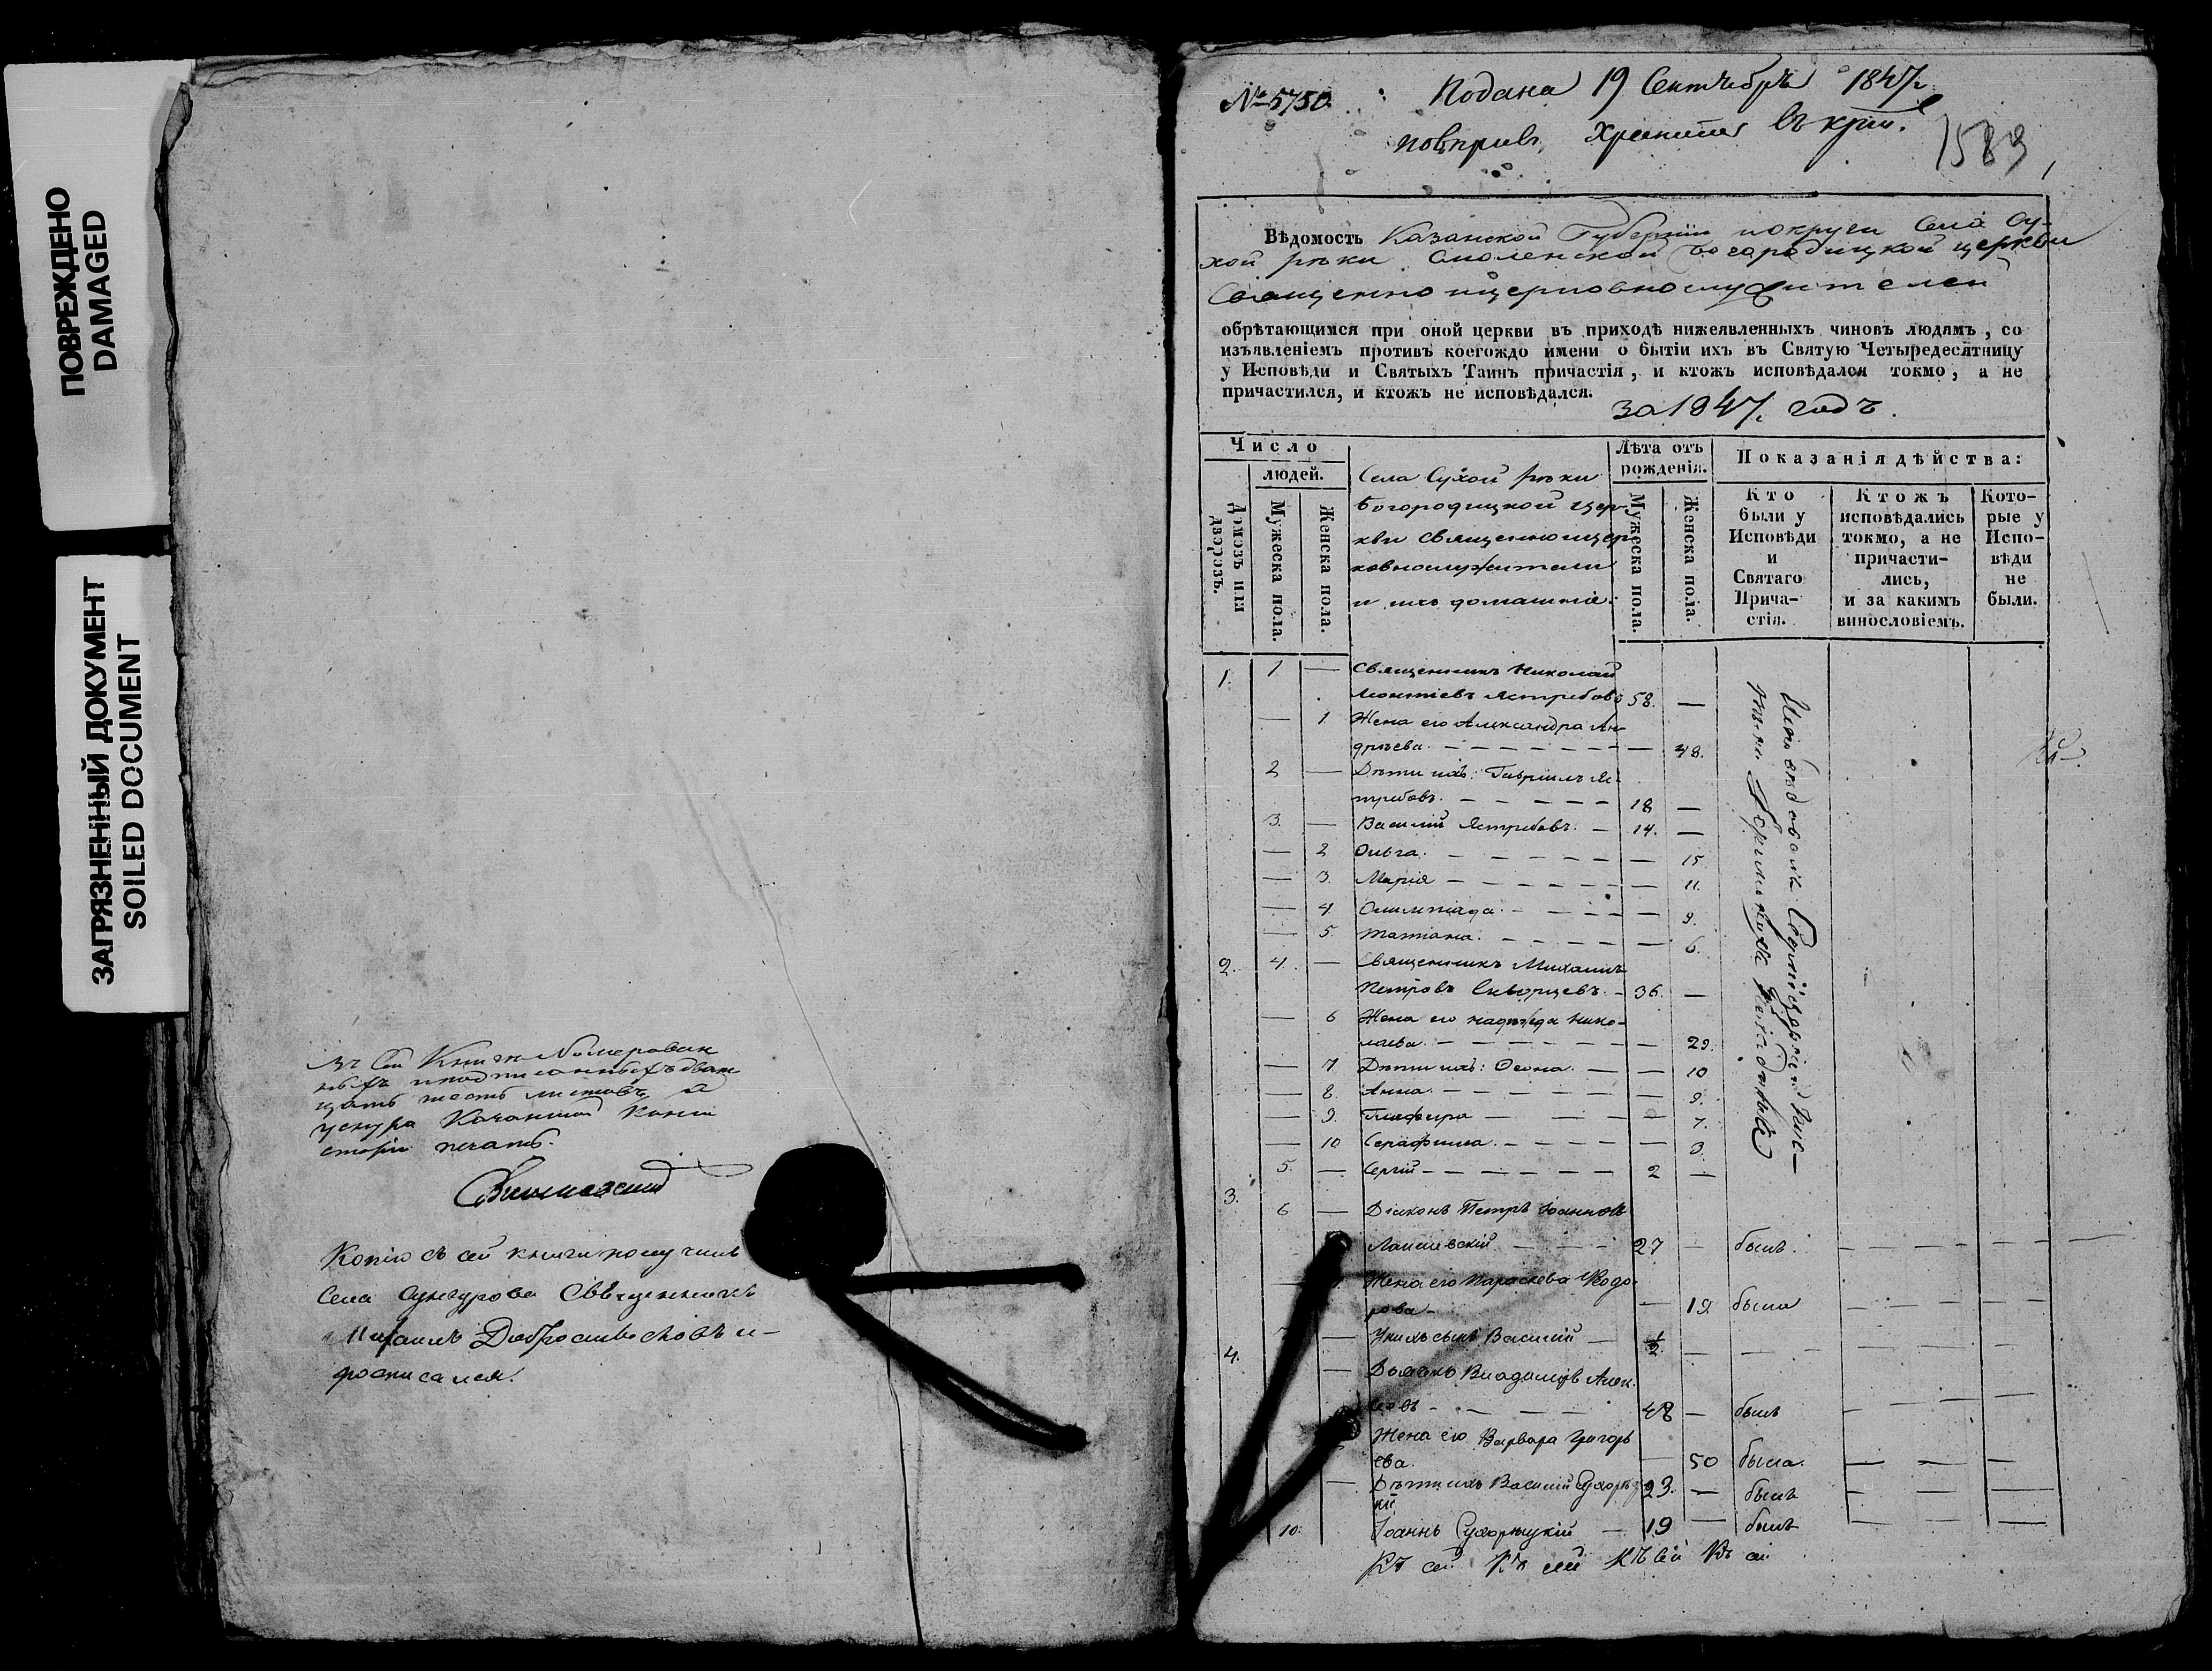 ПОВРЕЖДЕНО
DAMAGED
ЗАГРЯЗНЕННЫЙ ДОКУМЕНТ
SOILED DOCUMENT
Въ сей Книги Номерован
ныхъ и подписанныхъ двад
цать шесть листовъ а
Казанской Конси
сторіи печать.
Копію съ сей книги получилъ
Села Сунгурова Священникъ
Михаилъ Добросмысловъ и
росписался.
№ 5750. Подана 19 Сентября 1847.
повѣрив. хранить въ
1589
Вѣдомость Казанской Губерніи и округи Села Су-
хой рѣки Смоленской Богородицкой церкви
Священно и церковнослужителей
обрѣтающимся при оной церкви въ приходѣ нижеявленныхъ чиновъ людямъ, со
изъявленіемъ противъ коегождо имени о бытіи ихъ въ Святую Четыредесятницу
у Исповѣди и Святыхъ Таинъ причастія, и ктожъ исповѣдался токмо, а не
причастился, и ктожъ не исповѣдался.
за 1847. годъ.
Число
людей.
Домовъ или дворовъ.
Мужеска пола.
Женска пола.
Села Сухой рѣки
Богородицкой цер-
кви священно и цер
ковнослужители
и ихъ домашніе.
Лѣта отъ рожденія.
Мужеска пола.
Женска пола.
Показанія дѣйства:
Кто были у Исповѣди и Святаго Прича-стія.
Ктожъ исповѣдались токмо, а не причасти-лись, и за какимъ винословіемъ.
Кото-рые у Испо-вѣди не были.
1. 1 — Священникъ Николай
Леонтіевъ Ястребовъ 58. —
— 1 Жена его Александра Ан-
дрѣева. — — 48.
2 — Дѣти ихъ: Гавріилъ Яс-
требовъ. — 18 —
3. — Василій Ястребовъ. — 14. —
— 2 Ольга. — — 15
— 3. Марія — — 11.
— 4. Олимпіада. — — 9.
— 5. Татіана. — — 6.
2. 4. — Священникъ Михаилъ
Петровъ Скворцевъ. — 36. —
— 6 Жена его Надежда Нико-
лаева. — — 29.
— 7 Дѣти ихъ: — — 10
— 8. Анна. — — 9.
— 9. Глафира — — 7.
— 10 Серафима. — — 3
5. — Сергій — 2 —
3. 6 — Діаконъ Петръ Іоанновъ
Лаишевскій — 27 — былъ. — — —
Жена его Параскева Ѳеодо-
рова — — 19 была — — —
— У нихъ сынъ Василій — ½ — — — —
4. — Дьячокъ Владиміръ Алек-
— 48 — былъ — — —
Жена его Варвара Григорь
ева. — 50 была. — — —
— Дѣти ихъ Василій Сухорѣц
кій 23. — былъ — — —
10. Іоаннъ Сухорѣцкій — 19 — былъ — — —
Къ сей Къ сей Къ сей Къ сей